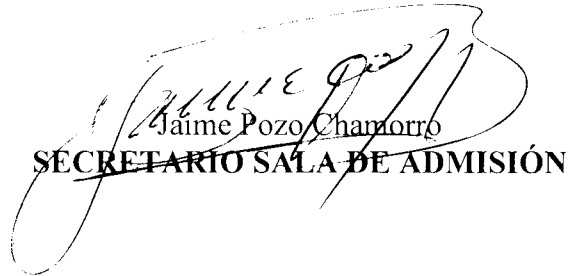 Jaime Pozo Chamorro
SECRETARIO SALA DE ADMISIÓN